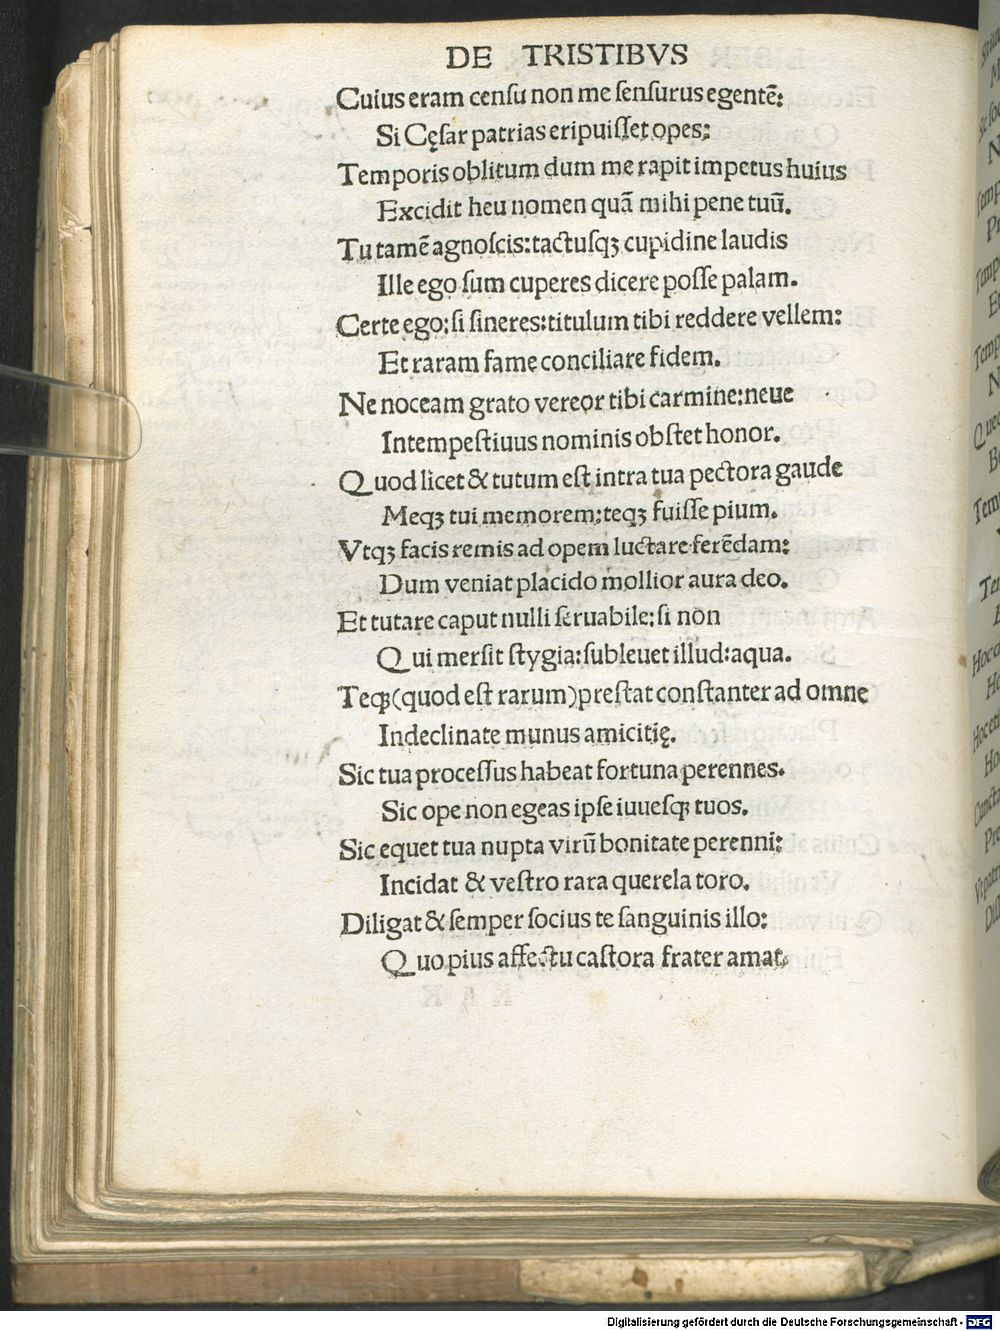 DE TRISTIBVS
Cuius eram censu non me sensurus egentē:
Si Cęsar patrias eripuisset opes:
Temporis oblitum dum me rapit impetus huius
Excidit heu nomen quā mihi pene tuū.
Tu tamē agnoscis: tactusqꝫ cupidine laudis
Ille ego sum cuperes dicere posse palam.
Certe ego: si sineres: titulum tibi reddere vellem:
Et raram famę conciliare fidem.
Ne noceam grato vereor tibi carmine: neue
Intempestiuus nominis obstet honor.
Quod licet & tutum est intra tua pectora gaude
Meqꝫ tui memorem: teqꝫ fuisse pium.
Vtqꝫ facis remis ad opem luctare ferēdam:
Dum veniat placido mollior aura deo.
Et tutare caput nulli seruabile: si non
Qui mersit stygia: subleuet illud: aqua.
Teqꝫ (quod est rarum) prestat constanter ad omne
Indeclinate munus amicitię.
Sic tua processus habeat fortuna perennes.
Sic ope non egeas ipse iuuesqꝫ tuos.
Sic equet tua nupta virū bonitate perenni:
Incidat & vestro rara querela toro.
Diligat & semper socius te sanguinis illo:
Quo pius affectu castora frater amat.
Digitalisierung gefördert durch die Deutsche Forschungsgemeinschaft - DFG